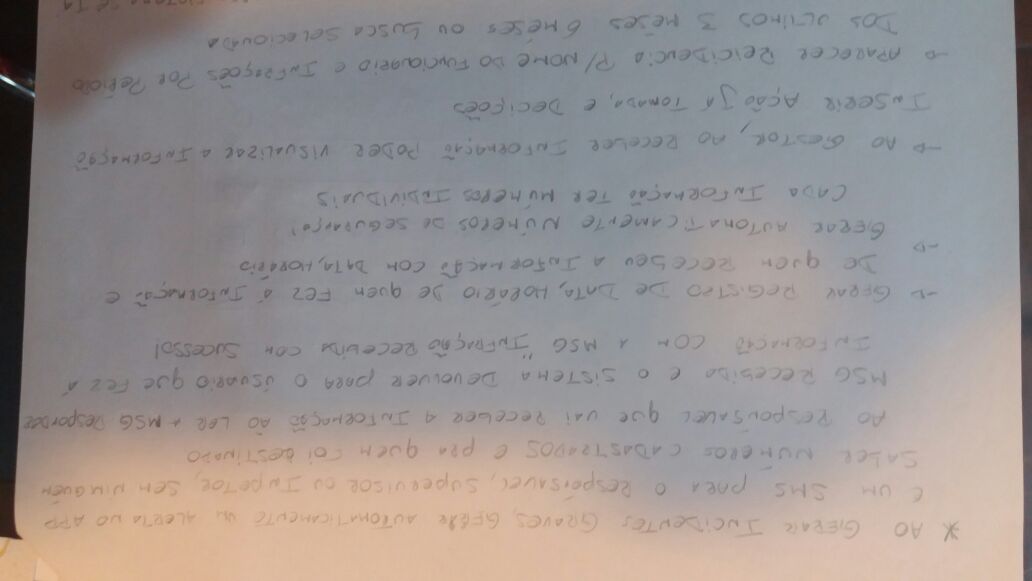 * AO GERAR INCIDENTES GRAVES, GERAR AUTOMATICAMENTE UM ALERTA NO APP
E UM SMS PARA O RESPOSAVEL, SUPERVISOR OU INPETOR, SEM NINGUÉM
SABER NÚMEROS CADASTRADOS E PRA QUEM FOI DESTINADO
AO RESPONSAVEL QUE VAI RECEBER A INFORMAÇÃO AO LER A MSG RESPONDER
MSG RECEBIDA E O SISTEMA DEVOLVER PARA O ÚSUARIO QUE FEZ Á
INFORMAÇÃO COM A MSG "INFRAÇÃO RECEBIDA COM SUCESSO!
→ GERAR REGISTRO DE DATA, HORÁRIO DE QUEM FEZ Á INFORMAÇÃO E
DE QUEM RECEBEU A INFORMAÇÃO COM DATA, HORÁRIO
→
GERAR AUTOMATICAMENTE NÚMEROS DE SEGURANÇA!
CADA INFORMAÇÃO TER NÚMEROS INDIVIDUAIS
→ AO GESTOR, AO RECEBER INFORMAÇÃO PODER VISUALIZAR A INFORMAÇÃO
INSERIR AÇÃO JÁ TOMADA, E DECIÇÕES
→ APARECER REICIDENCIA P/ NOME DO FUNCIONARIO E INFRAÇÕES POR PERÍODO
DOS ULTIMOS 3 MÉSES 6 MÉSES OU BUSCA SELECIONADA